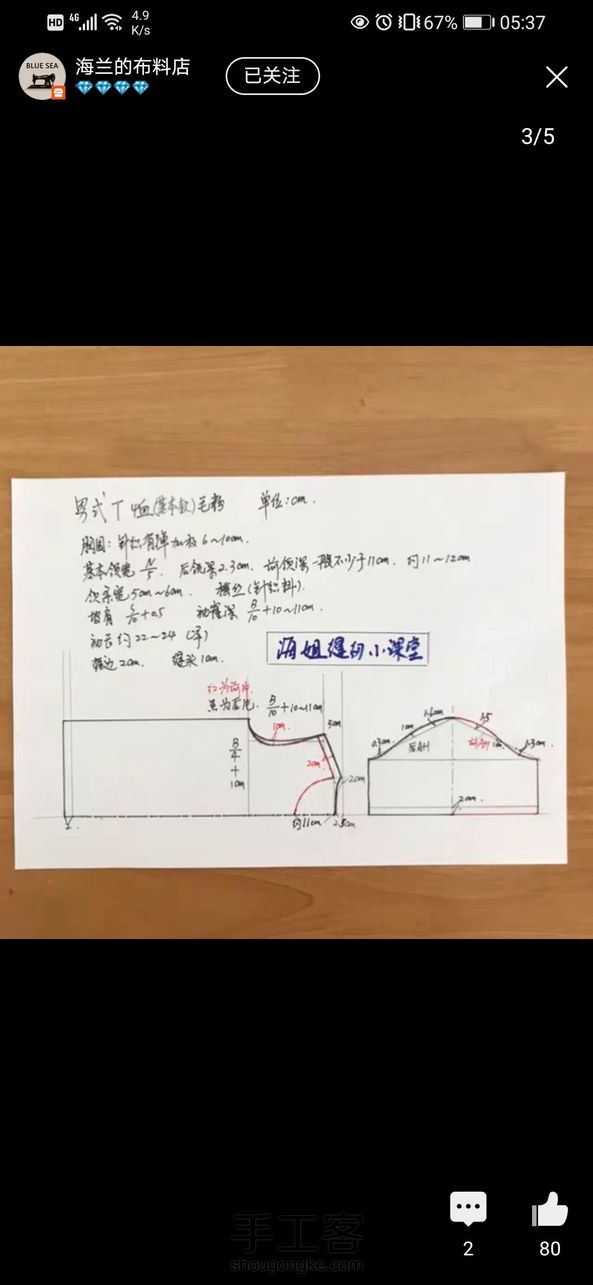 HD 4G 4.9 K/s 67% 05:37
BLUE SEA
海兰的布料店
已关注
3/5
男式T恤(基本款)毛粉 单位:cm.
胸围:针织有弹加放6~10cm.
基本领宽 N/5. 后领深2.3cm. 前领深一般不少于11cm. 约11~12cm
领条宽5cm~6cm. 横丝(针织料).
+0.5 袖窿深 B/10+10~11cm.
袖长约22~24
2cm. 缝头1cm.
海姐缝的小课堂
红为前片.
黑为后片. B/10+10~11cm
1cm.
5cm
B/4
+
1cm
2cm
2cm
约11cm
1.6cm
1cm
1.5
1cm
2cm.
2
80
手工客
shougongke.com